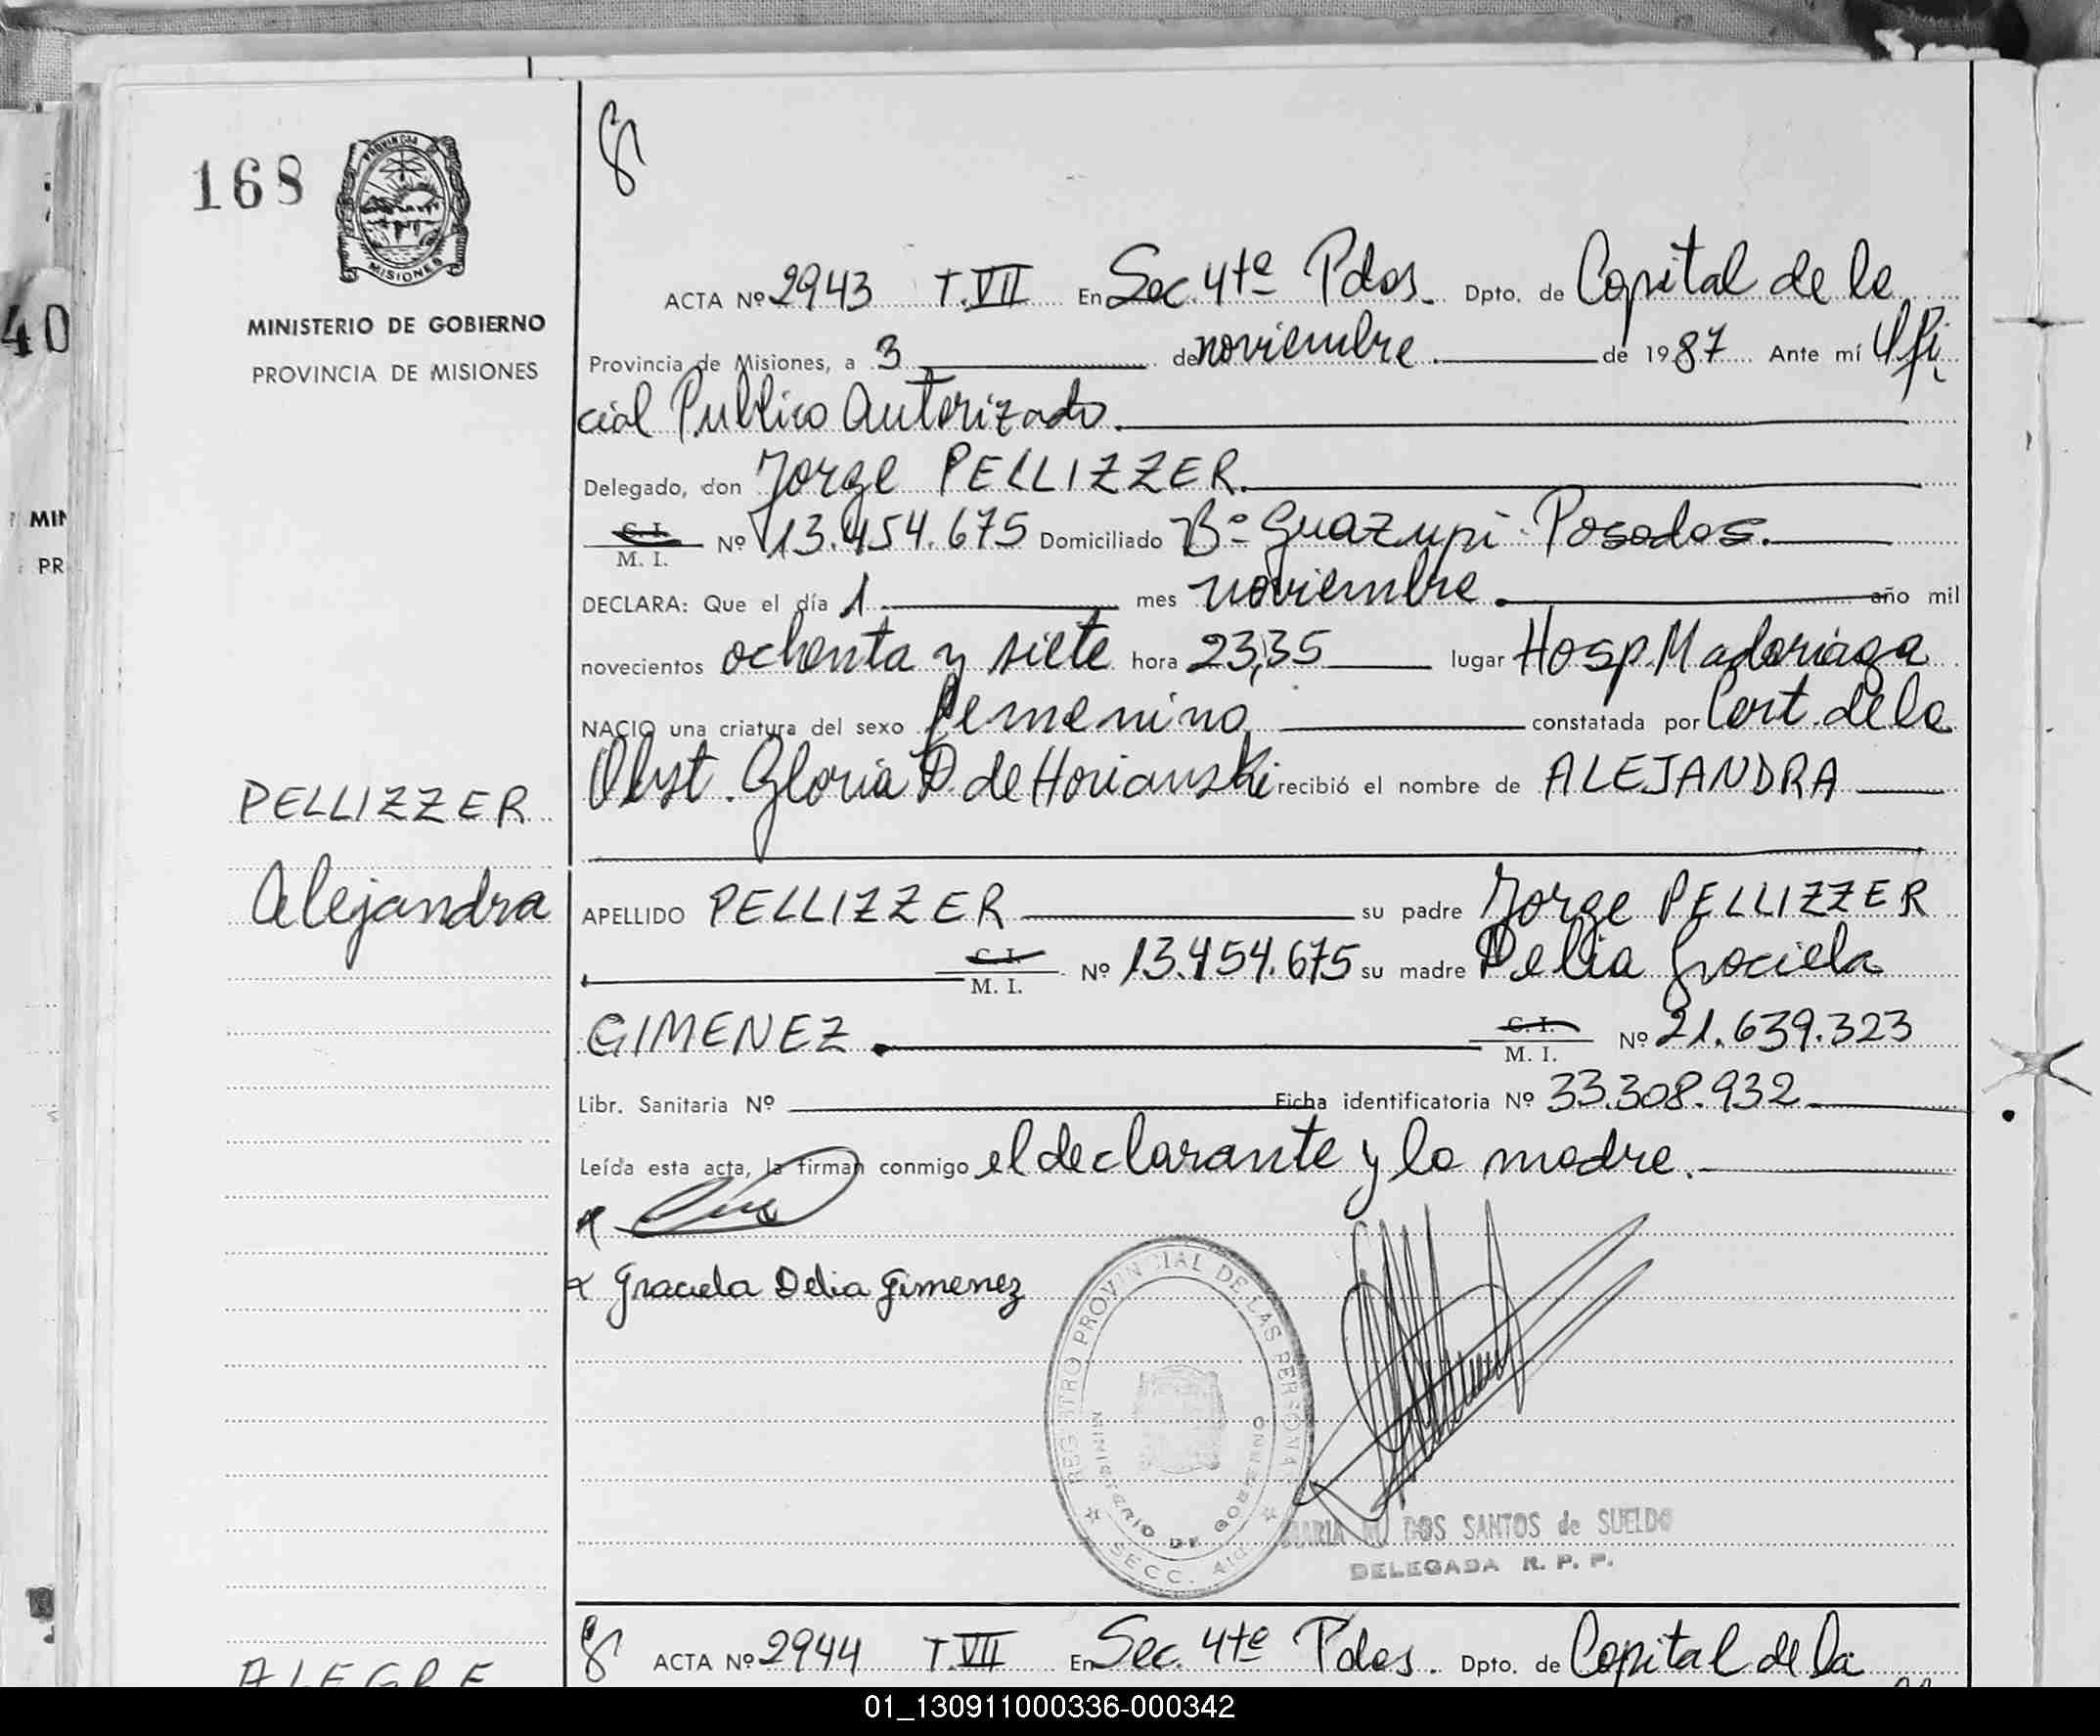 168
PROVINCIA
MISIONES
MINISTERIO DE GOBIERNO
PROVINCIA DE MISIONES
40
MIN
PR
ACTA Nº 2943 T.VII En Sec. 4ta Pdas. Dpto. de Capital de la
Provincia de Misiones, a 3 de noviembre de 1987 Ante mí Ofi
cial Publico Autorizado.
Delegado, don Jorge PELLIZZER.
C. I.
M. I. Nº 13.454.675 Domiciliado Bº Guazupi Posadas.
DECLARA: Que el día 1 mes noviembre. año mil
novecientos ochenta y siete hora 23,35 lugar Hosp. Madariaga
NACIO una criatura del sexo femenino constatada por Cert. de la
Obst. Gloria D. de Horianski recibió el nombre de ALEJANDRA
PELLIZZER
Alejandra
APELLIDO PELLIZZER su padre Jorge PELLIZZER
C. I.
M. I. Nº 13.454.675 su madre Delia Graciela
GIMENEZ. C. I.
M. I. Nº 21.639.323
Libr. Sanitaria Nº Ficha identificatoria Nº 33.308.932
Leída esta acta, la firman conmigo el declarante y la madre.
x
x Graciela Delia Gimenez
REGISTRO PROVINCIAL DE LAS PERSONAS
MINISTERIO DE GOBIERNO
SECC. 4ta
MARIA DOS SANTOS de SUELDO
DELEGADA R. P. P.
ACTA Nº 2944 T.VII En Sec. 4ta Pdas. Dpto. de Capital de la
ALEGRE
01_130911000336-000342